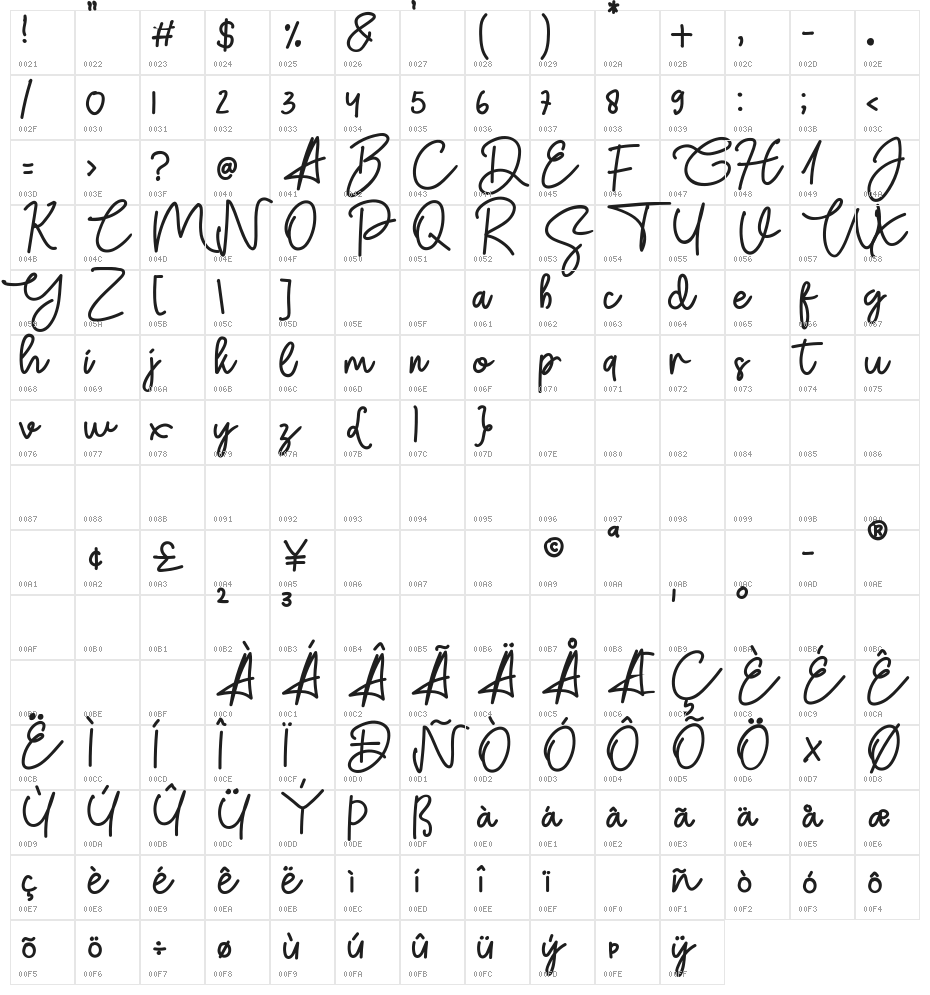 ! " # $ % & ' ( ) * + , - .
0021 0022 0023 0024 0025 0026 0027 0028 0029 002A 002B 002C 002D 002E
/ 0 1 2 3 4 5 6 7 8 9 : ; <
002F 0030 0031 0032 0033 0034 0035 0036 0037 0038 0039 003A 003B 003C
= > ? @ A B C D E F G H I J
003D 003E 003F 0040 0041 0042 0043 0044 0045 0046 0047 0048 0049 004A
K L M N O P Q R S T U V W X
004B 004C 004D 004E 004F 0050 0051 0052 0053 0054 0055 0056 0057 0058
Y Z [ \ ] a b c d e f g
0059 005A 005B 005C 005D 005E 005F 0061 0062 0063 0064 0065 0066 0067
h i j k l m n o p q r s t u
0068 0069 006A 006B 006C 006D 006E 006F 0070 0071 0072 0073 0074 0075
v w x y z { | }
0076 0077 0078 0079 007A 007B 007C 007D 007E 0080 0082 0084 0085 0086
0087 0088 008B 0091 0092 0093 0094 0095 0096 0097 0098 0099 009B 00A0
¢ £ ¥ © ª - ®
00A1 00A2 00A3 00A4 00A5 00A6 00A7 00A8 00A9 00AA 00AB 00AC 00AD 00AE
² ³ ¹ º
00AF 00B0 00B1 00B2 00B3 00B4 00B5 00B6 00B7 00B8 00B9 00BA 00BB 00BC
À Á Â Ã Ä Å Æ Ç È É Ê
00BD 00BE 00BF 00C0 00C1 00C2 00C3 00C4 00C5 00C6 00C7 00C8 00C9 00CA
Ë Ì Í Î Ï Ð Ñ Ò Ó Ô Õ Ö × Ø
00CB 00CC 00CD 00CE 00CF 00D0 00D1 00D2 00D3 00D4 00D5 00D6 00D7 00D8
Ù Ú Û Ü Ý Þ ß à á â ã ä å æ
00D9 00DA 00DB 00DC 00DD 00DE 00DF 00E0 00E1 00E2 00E3 00E4 00E5 00E6
ç è é ê ë ì í î ï ñ ò ó ô
00E7 00E8 00E9 00EA 00EB 00EC 00ED 00EE 00EF 00F0 00F1 00F2 00F3 00F4
õ ö ÷ ø ù ú û ü ý þ ÿ
00F5 00F6 00F7 00F8 00F9 00FA 00FB 00FC 00FD 00FE 00FF